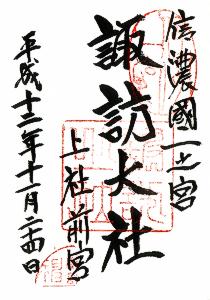 信濃國一之宮
諏訪大社
上社前宮
平成十二年十一月二十四日